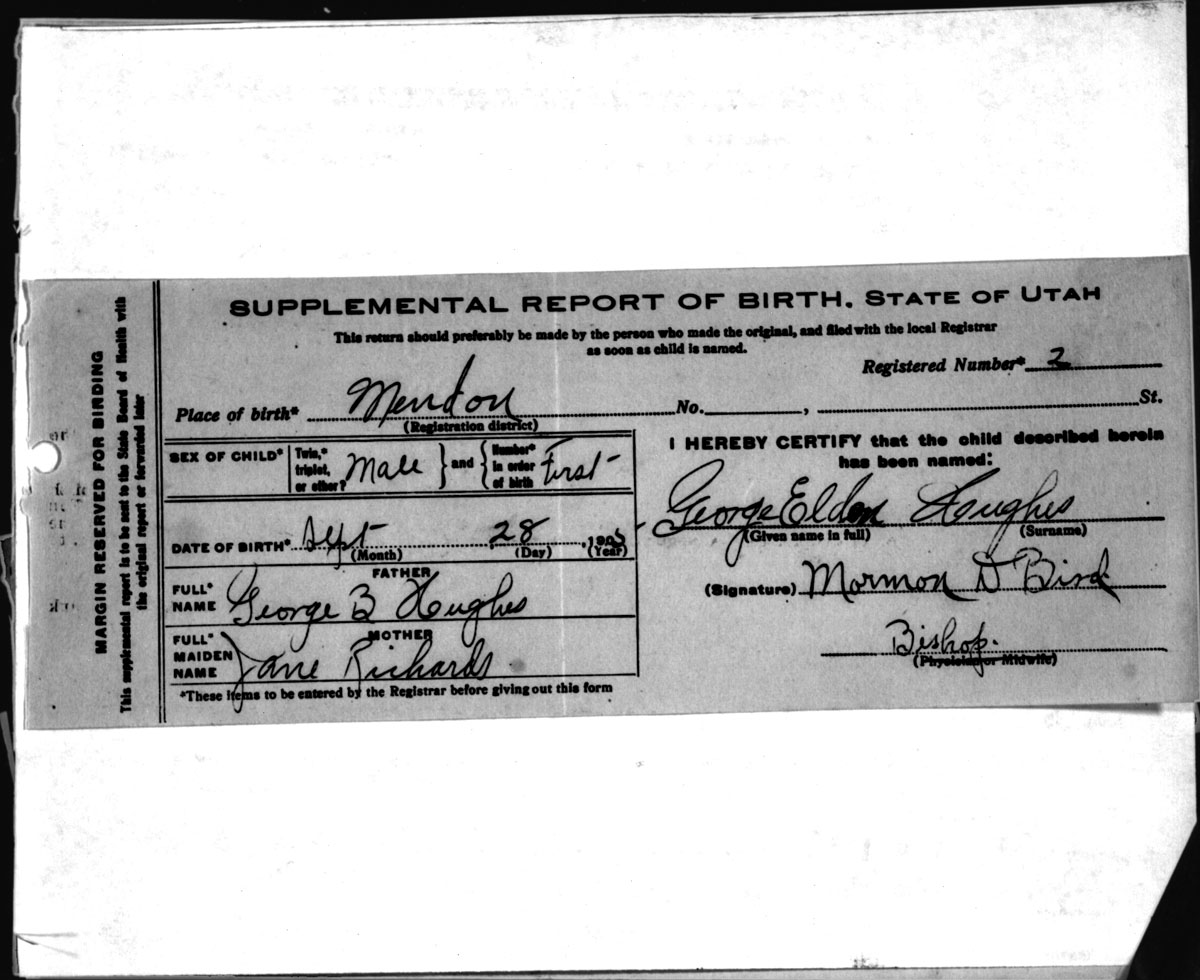 SUPPLEMENTAL REPORT OF BIRTH. STATE OF UTAH
This return should preferably be made by the person who made the original, and filed with the local Registrar
as soon as child is named.
Registered Number* 2
Place of birth* Mendon No. , St.
(Registration district)
SEX OF CHILD* Twin,* triplet, or other? Male and Number* in order of birth First
DATE OF BIRTH* Sept 28, 1905
(Month) (Day) (Year)
FATHER
FULL* NAME George B Hughes
MOTHER
FULL* MAIDEN NAME Jane Richards
*These items to be entered by the Registrar before giving out this form
I HEREBY CERTIFY that the child described herein
has been named:
George Eldon Hughes
(Given name in full) (Surname)
(Signature) Mormon D Bird
Bishop.
(Physician or Midwife)
MARGIN RESERVED FOR BINDING
This supplemental report is to be sent to the State Board of Health with
the original report or forwarded later